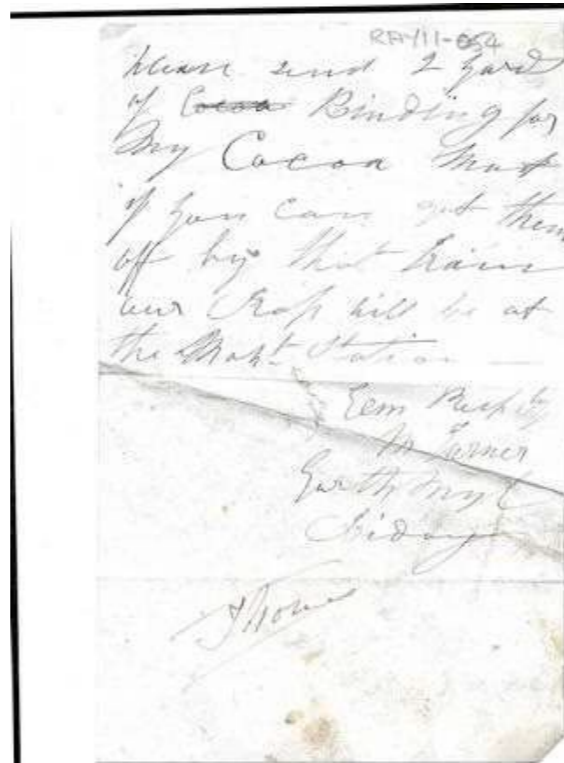 RHY11-054
Please send 2 Yard
of Cocoa Binding for
My Cocoa Mat
if you can get them
off by that train
our will be at
the Station
M Turner
Garthmyl
Friday